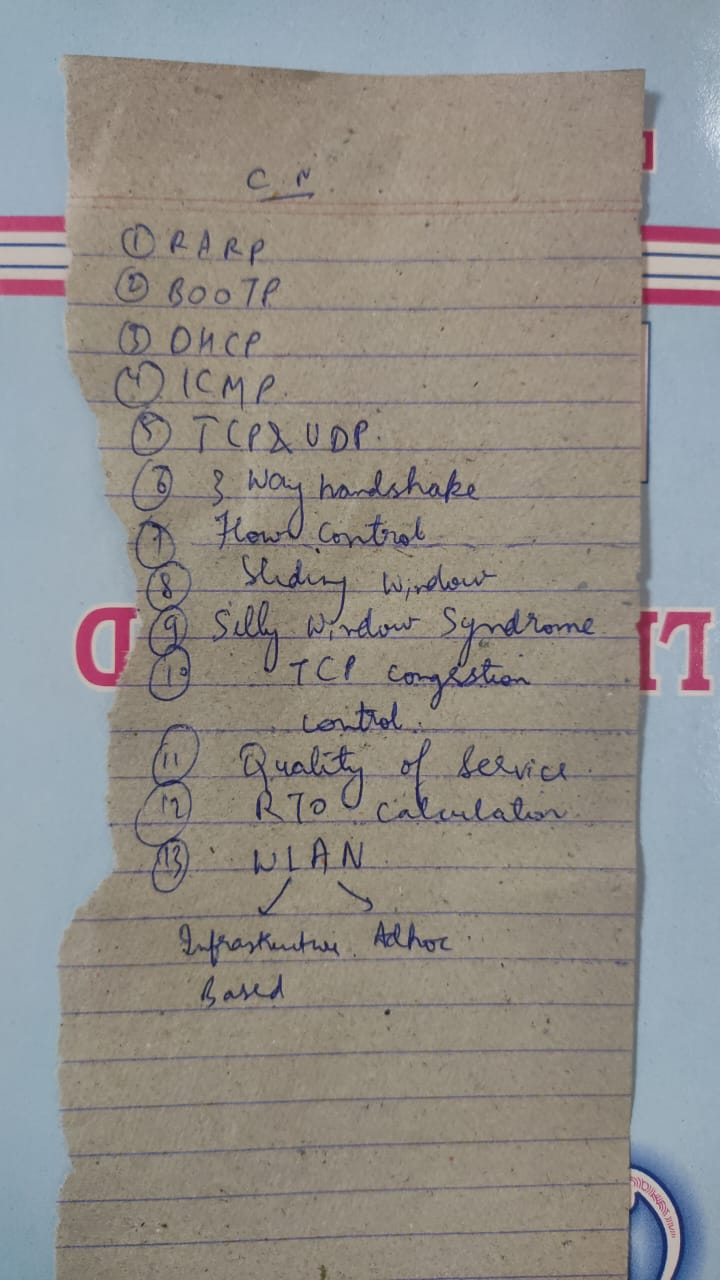 C N
① RARP
② BOOTP
③ DHCP
④ ICMP.
⑤ TCP & UDP.
⑥ 3 Way handshake
⑦ Flow Control
⑧ Sliding Window
⑨ Silly Window Syndrome
⑩ TCP congestion
control.
⑪ Quality of Service
⑫ RTO calculation
⑬ WLAN
Infrastructure Adhoc
Based